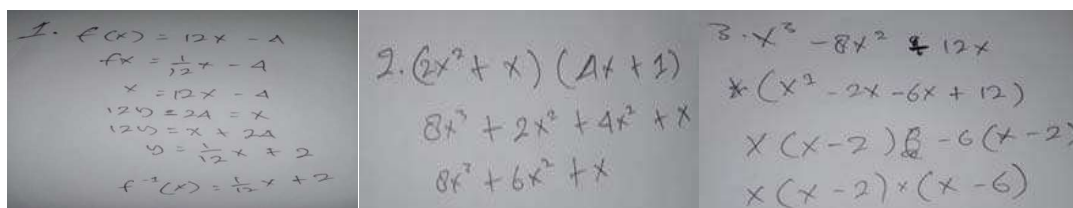 1. f(x) = 12x - 4
fx = 1/12 x - 4
x = 12x - 4
12y = 24 = x
12y = x + 24
y = 1/12 x + 2
f⁻¹(x) = 1/12 x + 2
2. (2x² + x) (4x + 1)
8x³ + 2x² + 4x² + x
8x³ + 6x² + x
3. x³ - 8x² + 12x
x (x² - 2x - 6x + 12)
x (x - 2) - 6 (x - 2)
x (x - 2) x (x - 6)